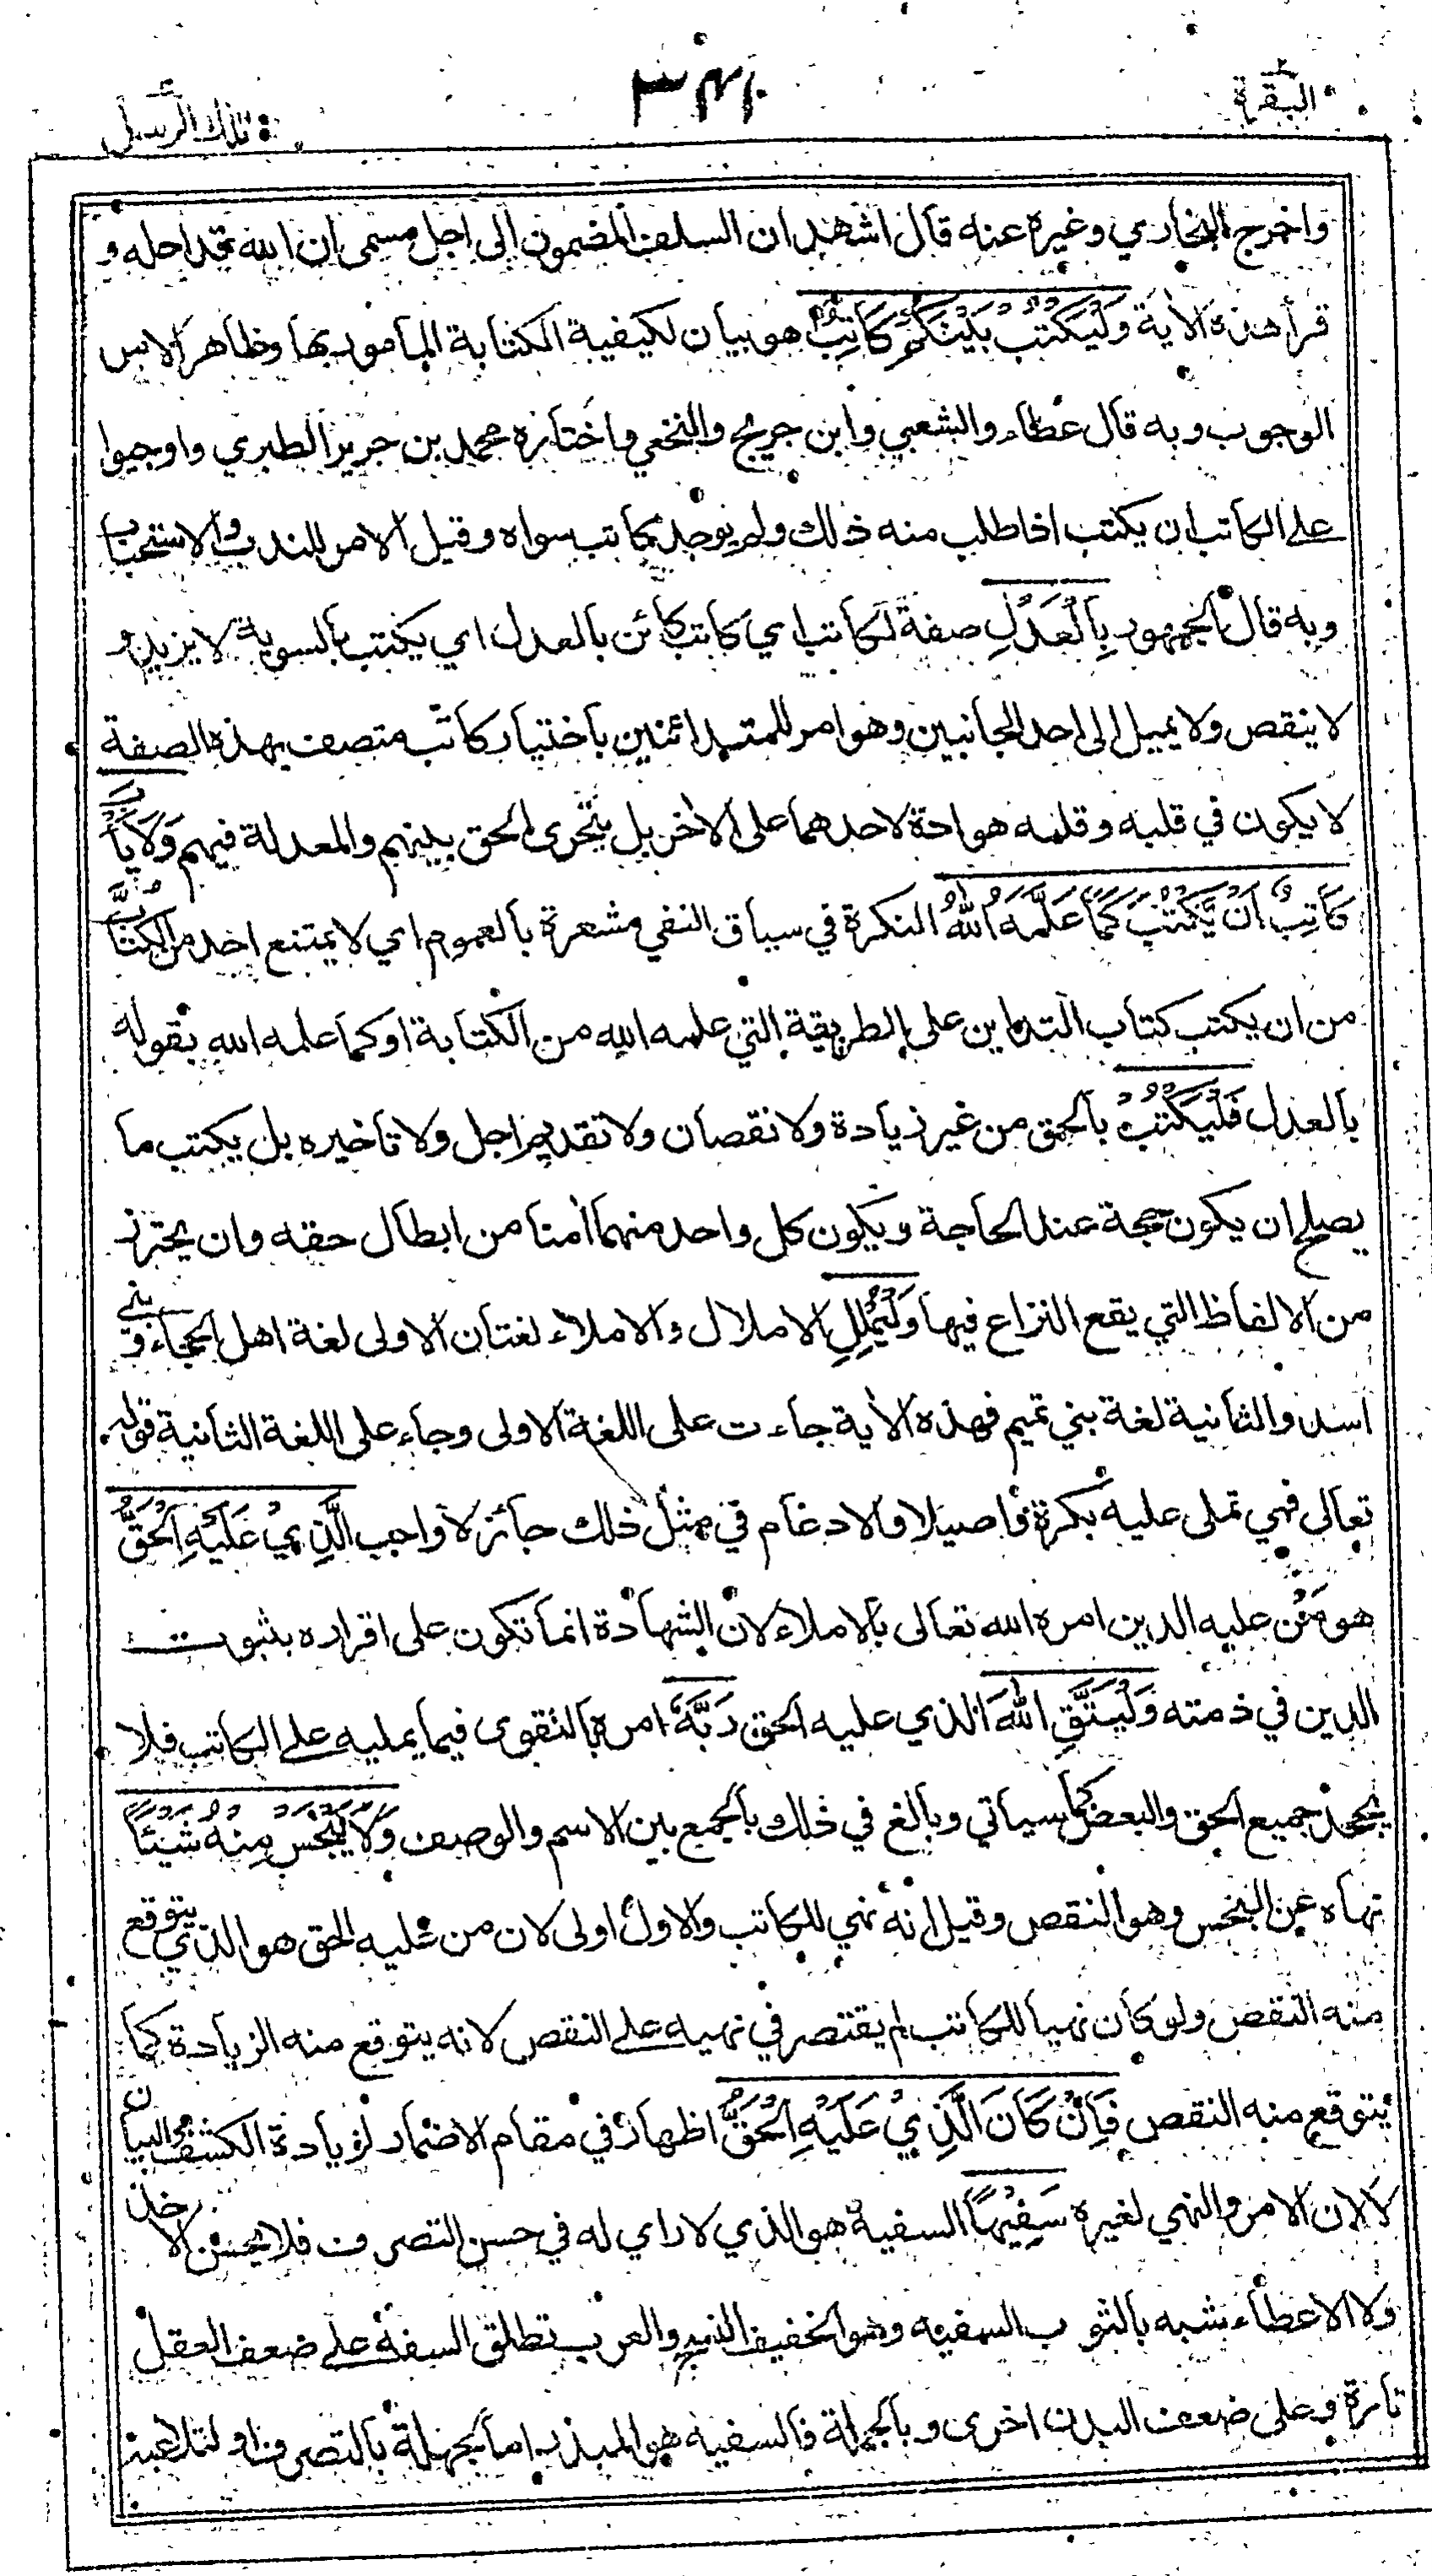 البقرة
تلك الرسل
واخرج البخاري وغيره عنه قال اشهد ان السلف المضمون الى اجل مسمى ان الله قد احله و
قرأ هذه الاٰية وَلْيَكْتُبْ بَيْنَكُمْ كَاتِبٌ هو بيان لكيفية الكتابة المامور بها وظاهر الامر
الوجوب وبه قال عطاء والشعبي وابن جريج والنخعي واختاره محمد بن جرير الطبري واوجبوا
على الكاتب ان يكتب اذا طلب منه ذلك ولم يوجد كاتب سواه وقيل الامر للندب والاستحباب
وبه قال الجمهور بِالْعَدْلِ صفة لكاتب اي كاتب كائن بالعدل اي يكتب بالسوية لا يزيد و
لا ينقص ولا يميل الى احد الجانبين وهو امر للمتداينين باختيار كاتب متصف بهذه الصفة
لا يكون في قلبه وقلمه هوادة لاحدهما على الاٰخر بل يتحرى الحق بينهم والمعدلة فيهم وَلَا يَأْبَ
كَاتِبٌ اَنْ يَّكْتُبَ كَمَا عَلَّمَهُ اللّٰهُ النكرة في سياق النفي مشعرة بالعموم اي لا يمتنع احد من الكتاب
من ان يكتب كتاب التداين على الطريقة التي علمه الله من الكتابة او كما علمه الله بقوله
بالعدل فَلْيَكْتُبْ بالحق من غير زيادة ولا نقصان ولا تقديم اجل ولا تاخيره بل يكتب ما
يصلح ان يكون حجة عند الحاجة ويكون كل واحد منهما اٰمنا من ابطال حقه وان يحترز
من الالفاظ التي يقع النزاع فيها وَلْيُمْلِلِ الاملال والاملاء لغتان الاولى لغة اهل الحجاز و بني
اسد والثانية لغة بني تميم فهذه الاٰية جاءت على اللغة الاولى وجاء على اللغة الثانية قوله
تعالى فهي تملى عليه بكرة واصيلا والادغام في مثل ذلك جائز لا واجب الَّذِيْ عَلَيْهِ الْحَقُّ
هو مَن عليه الدين امره الله تعالى بالاملاء لان الشهادة انما تكون على اقراره بثبوت
الدين في ذمته وَلْيَتَّقِ اللّٰهَ الذي عليه الحق رَبَّهٗ امره بالتقوى فيما يمليه على الكاتب فلا
يجحد جميع الحق والبعض كما سيأتي وبالغ في ذلك بالجمع بين الاسم والوصف وَلَا يَبْخَسْ مِنْهُ شَيْئًا
نهاه عن البخس وهو النقص وقيل انه نهي للكاتب والاول اولى لان من عليه الحق هو الذي يتوقع
منه النقص ولو كان نهيا للكاتب لم يقتصر في نهيه على النقص لانه يتوقع منه الزيادة كما
يتوقع منه النقص فَاِنْ كَانَ الَّذِيْ عَلَيْهِ الْحَقُّ اظهار في مقام الاضمار لزيادة الكشف والبيان
لا لان الامر والنهي لغيره سَفِيْهًا السفيه هو الذي لا راي له في حسن التصرف فلا يحسن الاخذ
ولا الاعطاء شبه بالثوب السفيه وهو الخفيف النسج والعرب تطلق السفه على ضعف العقل
تارة وعلى ضعف البدن اخرى وبالجملة فالسفيه هو المبذر اما لجهله بالتصرف او لتلاعبه